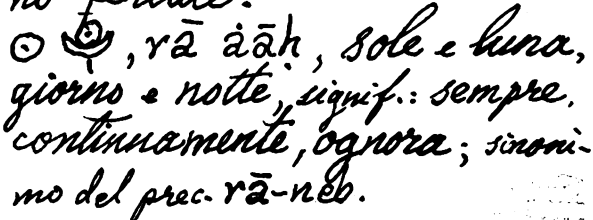 ☉ , rā ȧāh, sole e luna,
giorno e notte, signif.: sempre.
continuamente, ognora; sinoni-
mo del prec. rā-neb.